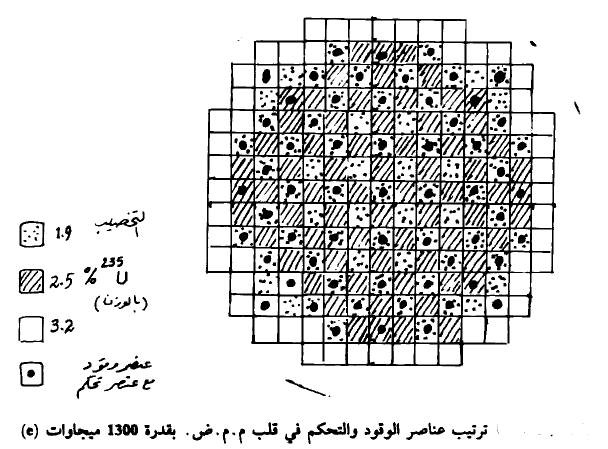 التخصيب
1.9
2.5 % U 235
(بالوزن)
3.2
عنصر وقود
مع عنصر تحكم
ترتيب عناصر الوقود والتحكم في قلب م.م.ض. بقدرة 1300 ميجاوات (e)